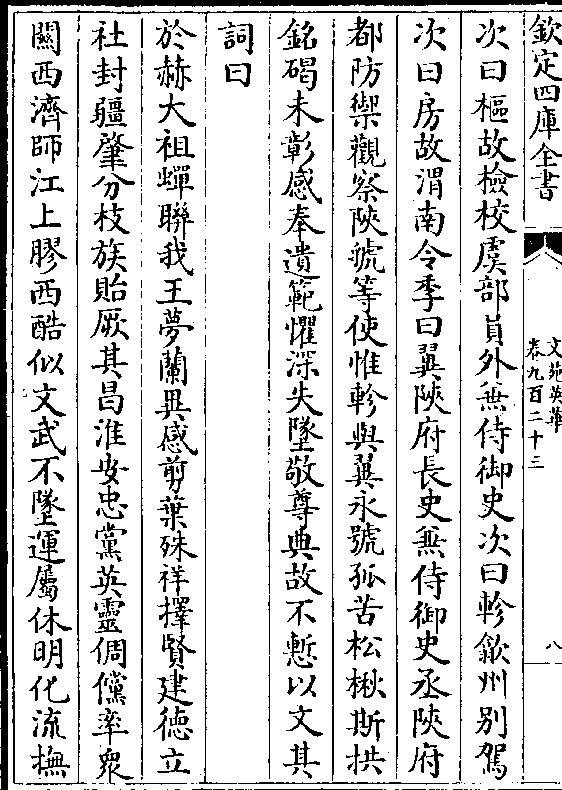 欽定四庫全書
文苑英華
卷九百二十三
八
次曰樞故檢校虞部員外兼侍御史次曰軫歙州別駕
次曰房故渭南令季曰翼陝府長史兼侍御史丞陝府
都防禦觀察陝虢等使惟軫與翼永號孤苦松楸斯拱
銘碣未彰感奉遺範懼深失墜敬尊典故不慙以文其
詞曰
於赫大祖蟬聯我王夢蘭異感剪葉殊祥擇賢建德立
社封疆肇分枝族貽厥其昌淮安忠黨英靈倜儻率衆
關西濟師江上膠西酷似文武不墜運屬休明化流撫